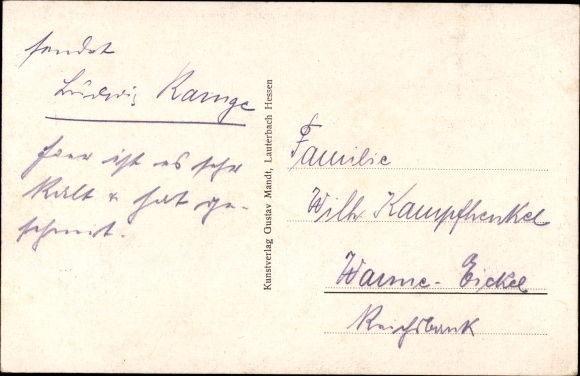 sendet
Ludwig Range
hier ist es sehr
kalt & hat ge-
schneit.
Kunstverlag Gustav Mandt, Lauterbach Hessen
Familie
Wilh. Kampfhenkel
Wanne-Eickel
Reichsbank